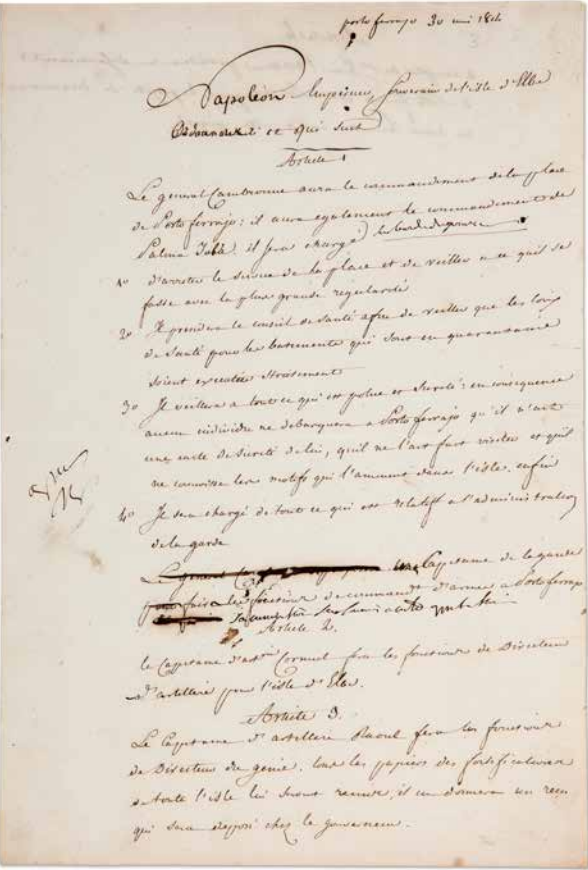 porto ferrajo 30 mai 1814
Napoléon Empereur, Souverain de l'isle d'Elbe
ce qui suit
Article 1
Le general Cambronne aura le commandement de la place
de Porto ferrajo : il aura egalement le commandement de
Palma Il sera chargé
1o d'arreter le service de la place et de veiller a ce quil se
fasse avec la plus grande regularité
2o Il prendra le conseil de santé afin de veiller que les loix
de santé pour les batiments qui sont en quarantaine
soient executées strictement
3o Il veillera a tout ce qui est police et sureté : en consequence
aucun individu ne debarquera a Porto ferrajo qu'il n'ait
une carte de sureté de lui, quil ne l'ait fait visiter et quil
ne connoisse les motifs qui l'amenent dans l'isle. enfin
4o Il sera chargé de tout ce qui est relatif a l'administration
de la garde
Le general un Capitaine de la garde
fonctions de commandt d'armes a Porto ferrajo
Article 2.
le Capitaine d'artrie Cornuel fera les fonctions de Directeur
d'artillerie pour l'isle d'Elbe.
Article 3.
Le Capitaine d'artillerie Raoul fera les fonctions
de Directeur du genie. tous les papiers des fortifications
de toute l'isle lui seront remis, il en donnera un recu
qui sera deposé chez le gouverneur.